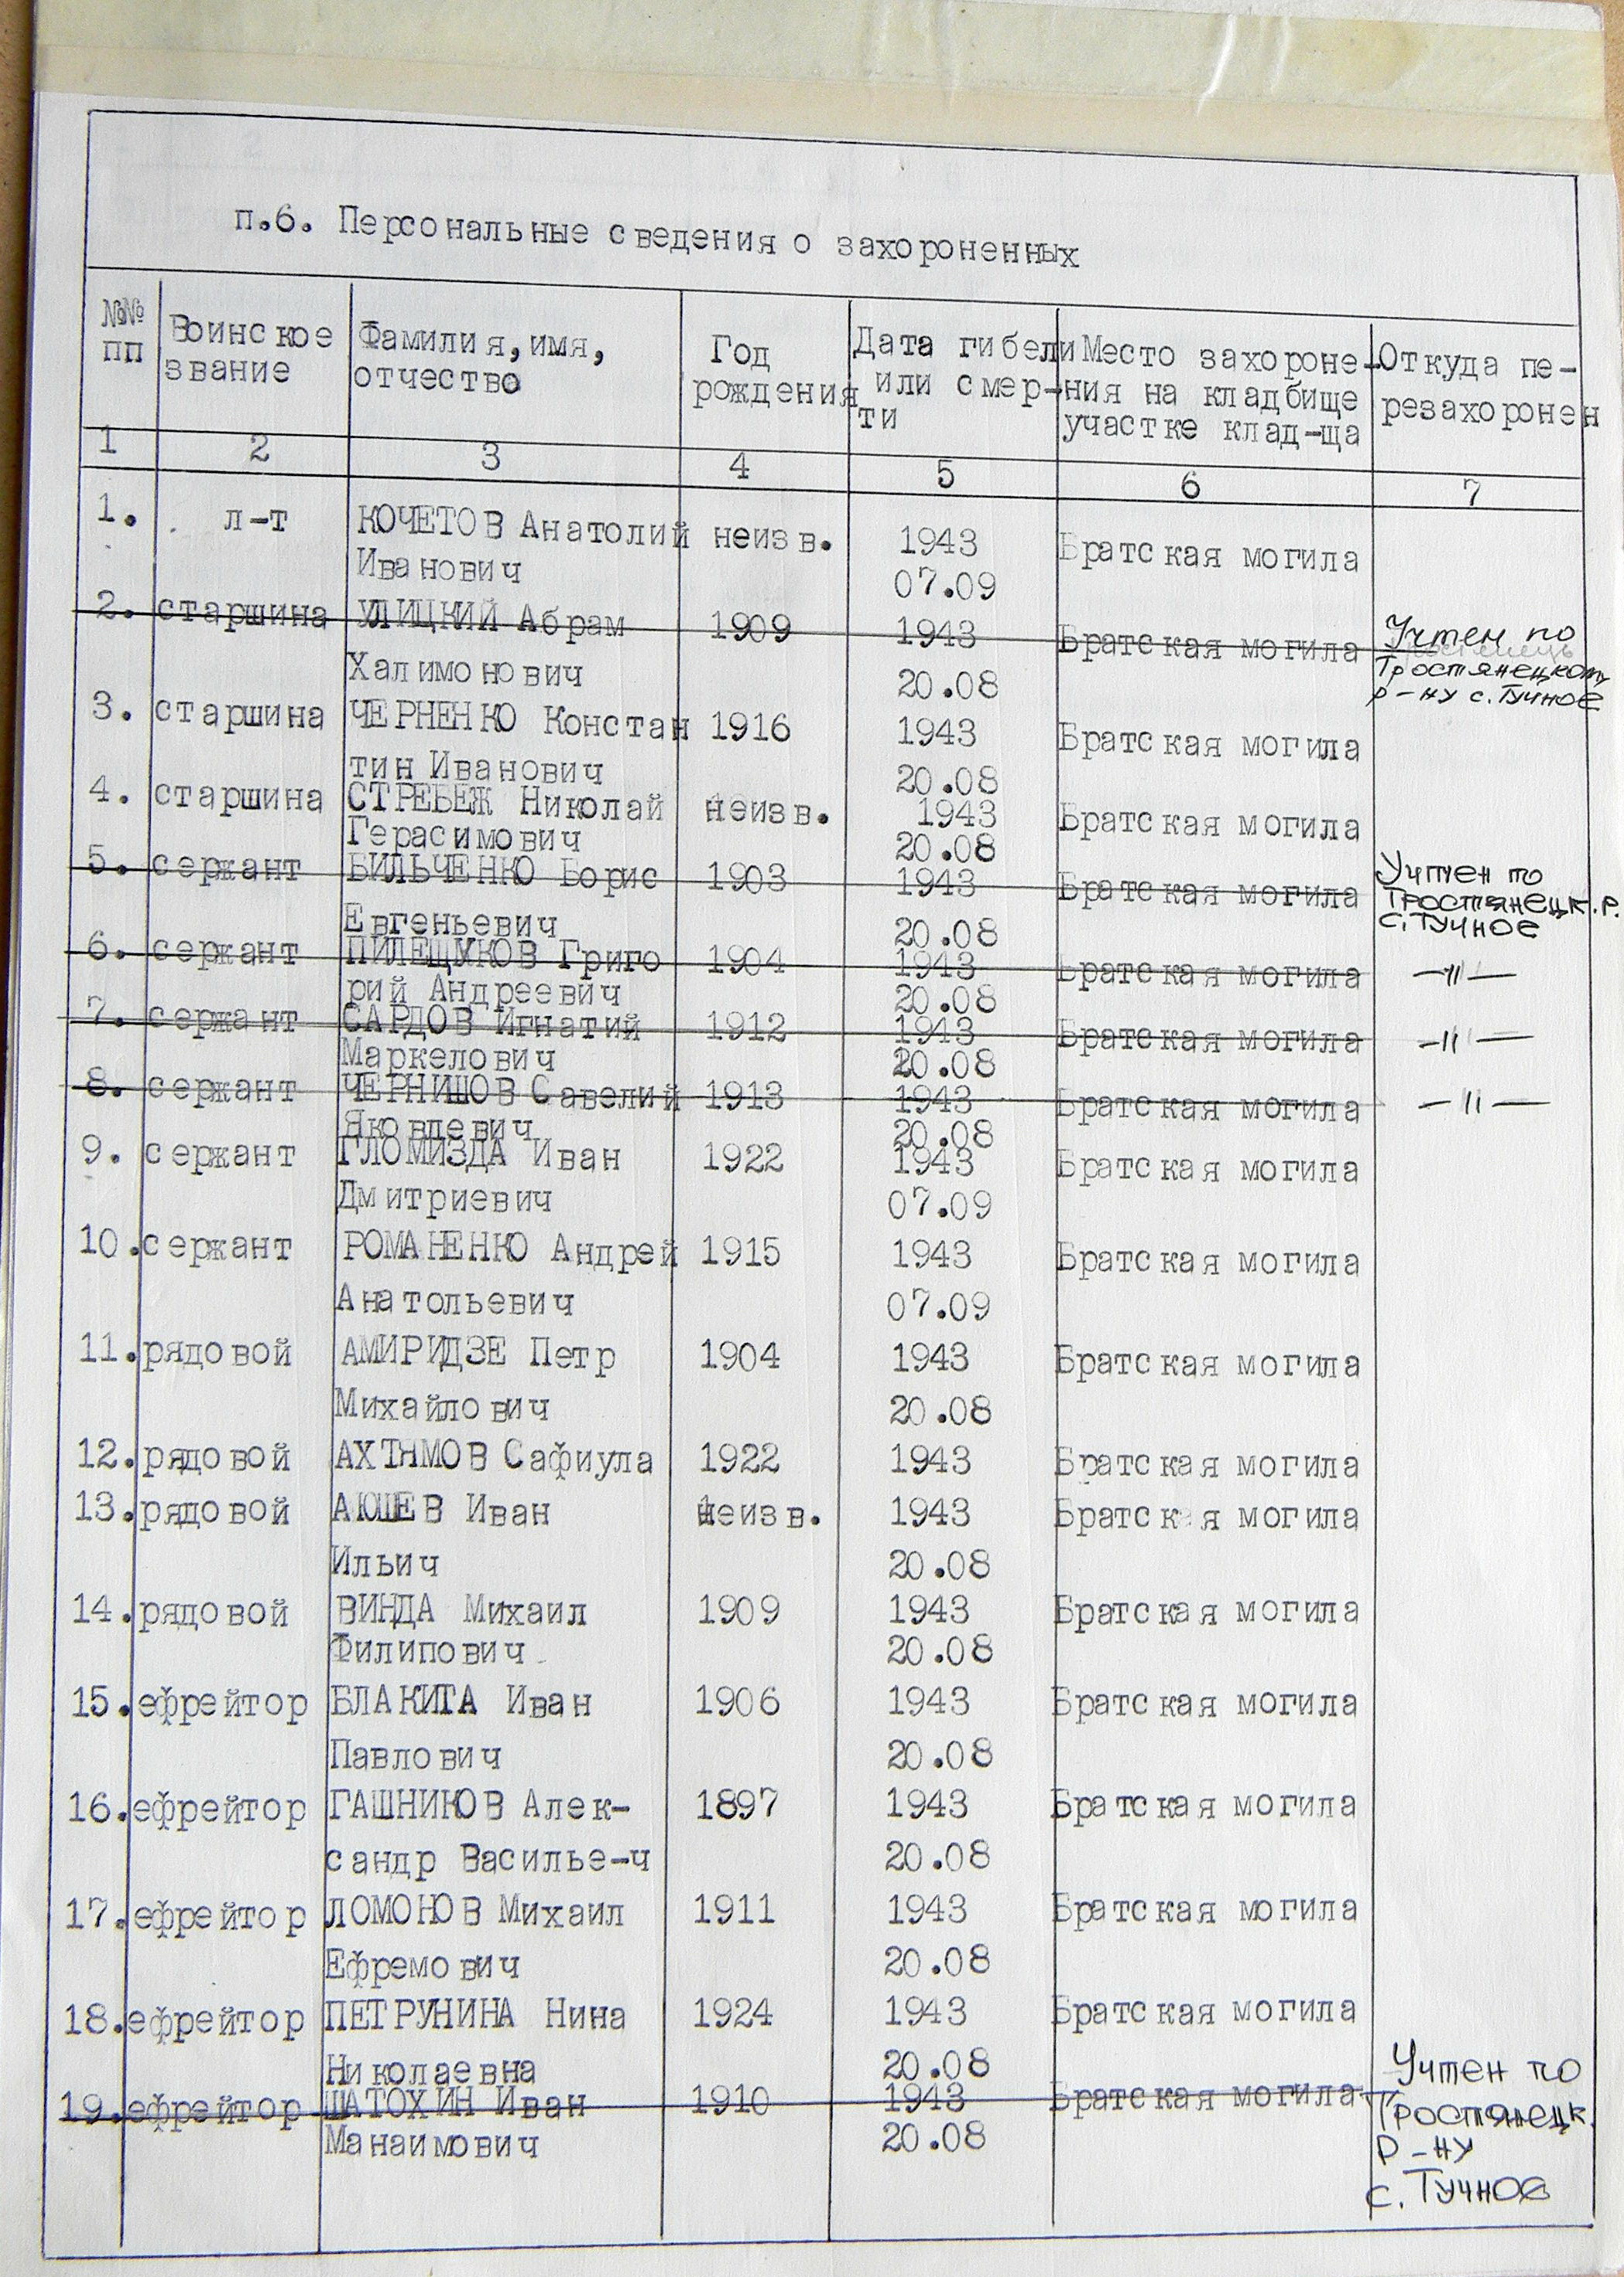 п.6. Персональные сведения о захороненных
№№ Воинское Фамилия, имя, Год Дата гибели Место захороне- Откуда пе-
пп звание отчество рождения или смер- ния на кладбище резахоронен
ти участке клад-ща
1 2 3 4 5 6 7
1. л-т КОЧЕТОВ Анатолий неизв. 1943 Братская могила
Иванович 07.09
2. старшина УЛИЦКИЙ Абрам 1909 1943 Братская могила Учтен по
Халимонович 20.08 Тростянецкому
р-ну с. Тучное
3. старшина ЧЕРНЕНКО Констан 1916 1943 Братская могила
тин Иванович 20.08
4. старшина СТРЕБЕЖ Николай неизв. 1943 Братская могила
Герасимович 20.08
5. сержант БИЛЬЧЕНКО Борис 1903 1943 Братская могила Учтен по
Тростянецк. р.
Евгеньевич 20.08 с. Тучное
6. сержант ПИЛЕЩУКОВ Григо 1904 1943 Братская могила —"—
рий Андреевич 20.08
7. сержант САРДОВ Игнатий 1912 1943 Братская могила —"—
Маркелович 20.08
8. сержант ЧЕРНИШОВ Савелий 1913 1943 Братская могила —"—
Яковлевич 20.08
9. сержант ГЛОМИЗДА Иван 1922 1943 Братская могила
Дмитриевич 07.09
10. сержант РОМАНЕНКО Андрей 1915 1943 Братская могила
Анатольевич 07.09
11. рядовой АМИРИДЗЕ Петр 1904 1943 Братская могила
Михайлович 20.08
12. рядовой АХТЯМОВ Сафиула 1922 1943 Братская могила
13. рядовой АЮШЕВ Иван неизв. 1943 Братская могила
Ильич 20.08
14. рядовой ВИНДА Михаил 1909 1943 Братская могила
Филипович 20.08
15. ефрейтор БЛАКИТА Иван 1906 1943 Братская могила
Павлович 20.08
16. ефрейтор ГАШНИКОВ Алек- 1897 1943 Братская могила
сандр Василье-ч 20.08
17. ефрейтор ЛОМОНОВ Михаил 1911 1943 Братская могила
Ефремович 20.08
18. ефрейтор ПЕТРУНИНА Нина 1924 1943 Братская могила
Николаевна 20.08 Учтен по
19. ефрейтор ШАТОХИН Иван 1910 1943 Братская могила Тростянецк.
Манаимович 20.08 р-ну
с. Тучное